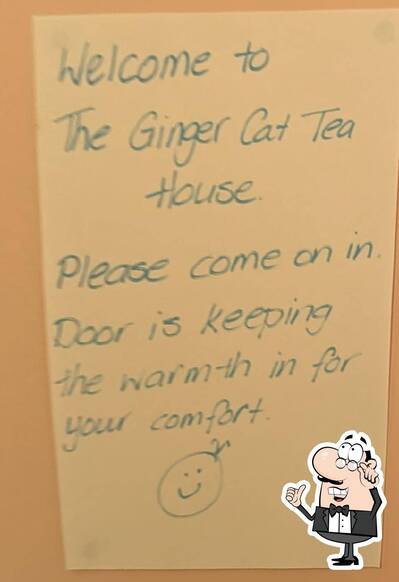 Welcome to
The Ginger Cat Tea
House.
Please come on in.
Door is keeping
the warmth in for
your comfort.